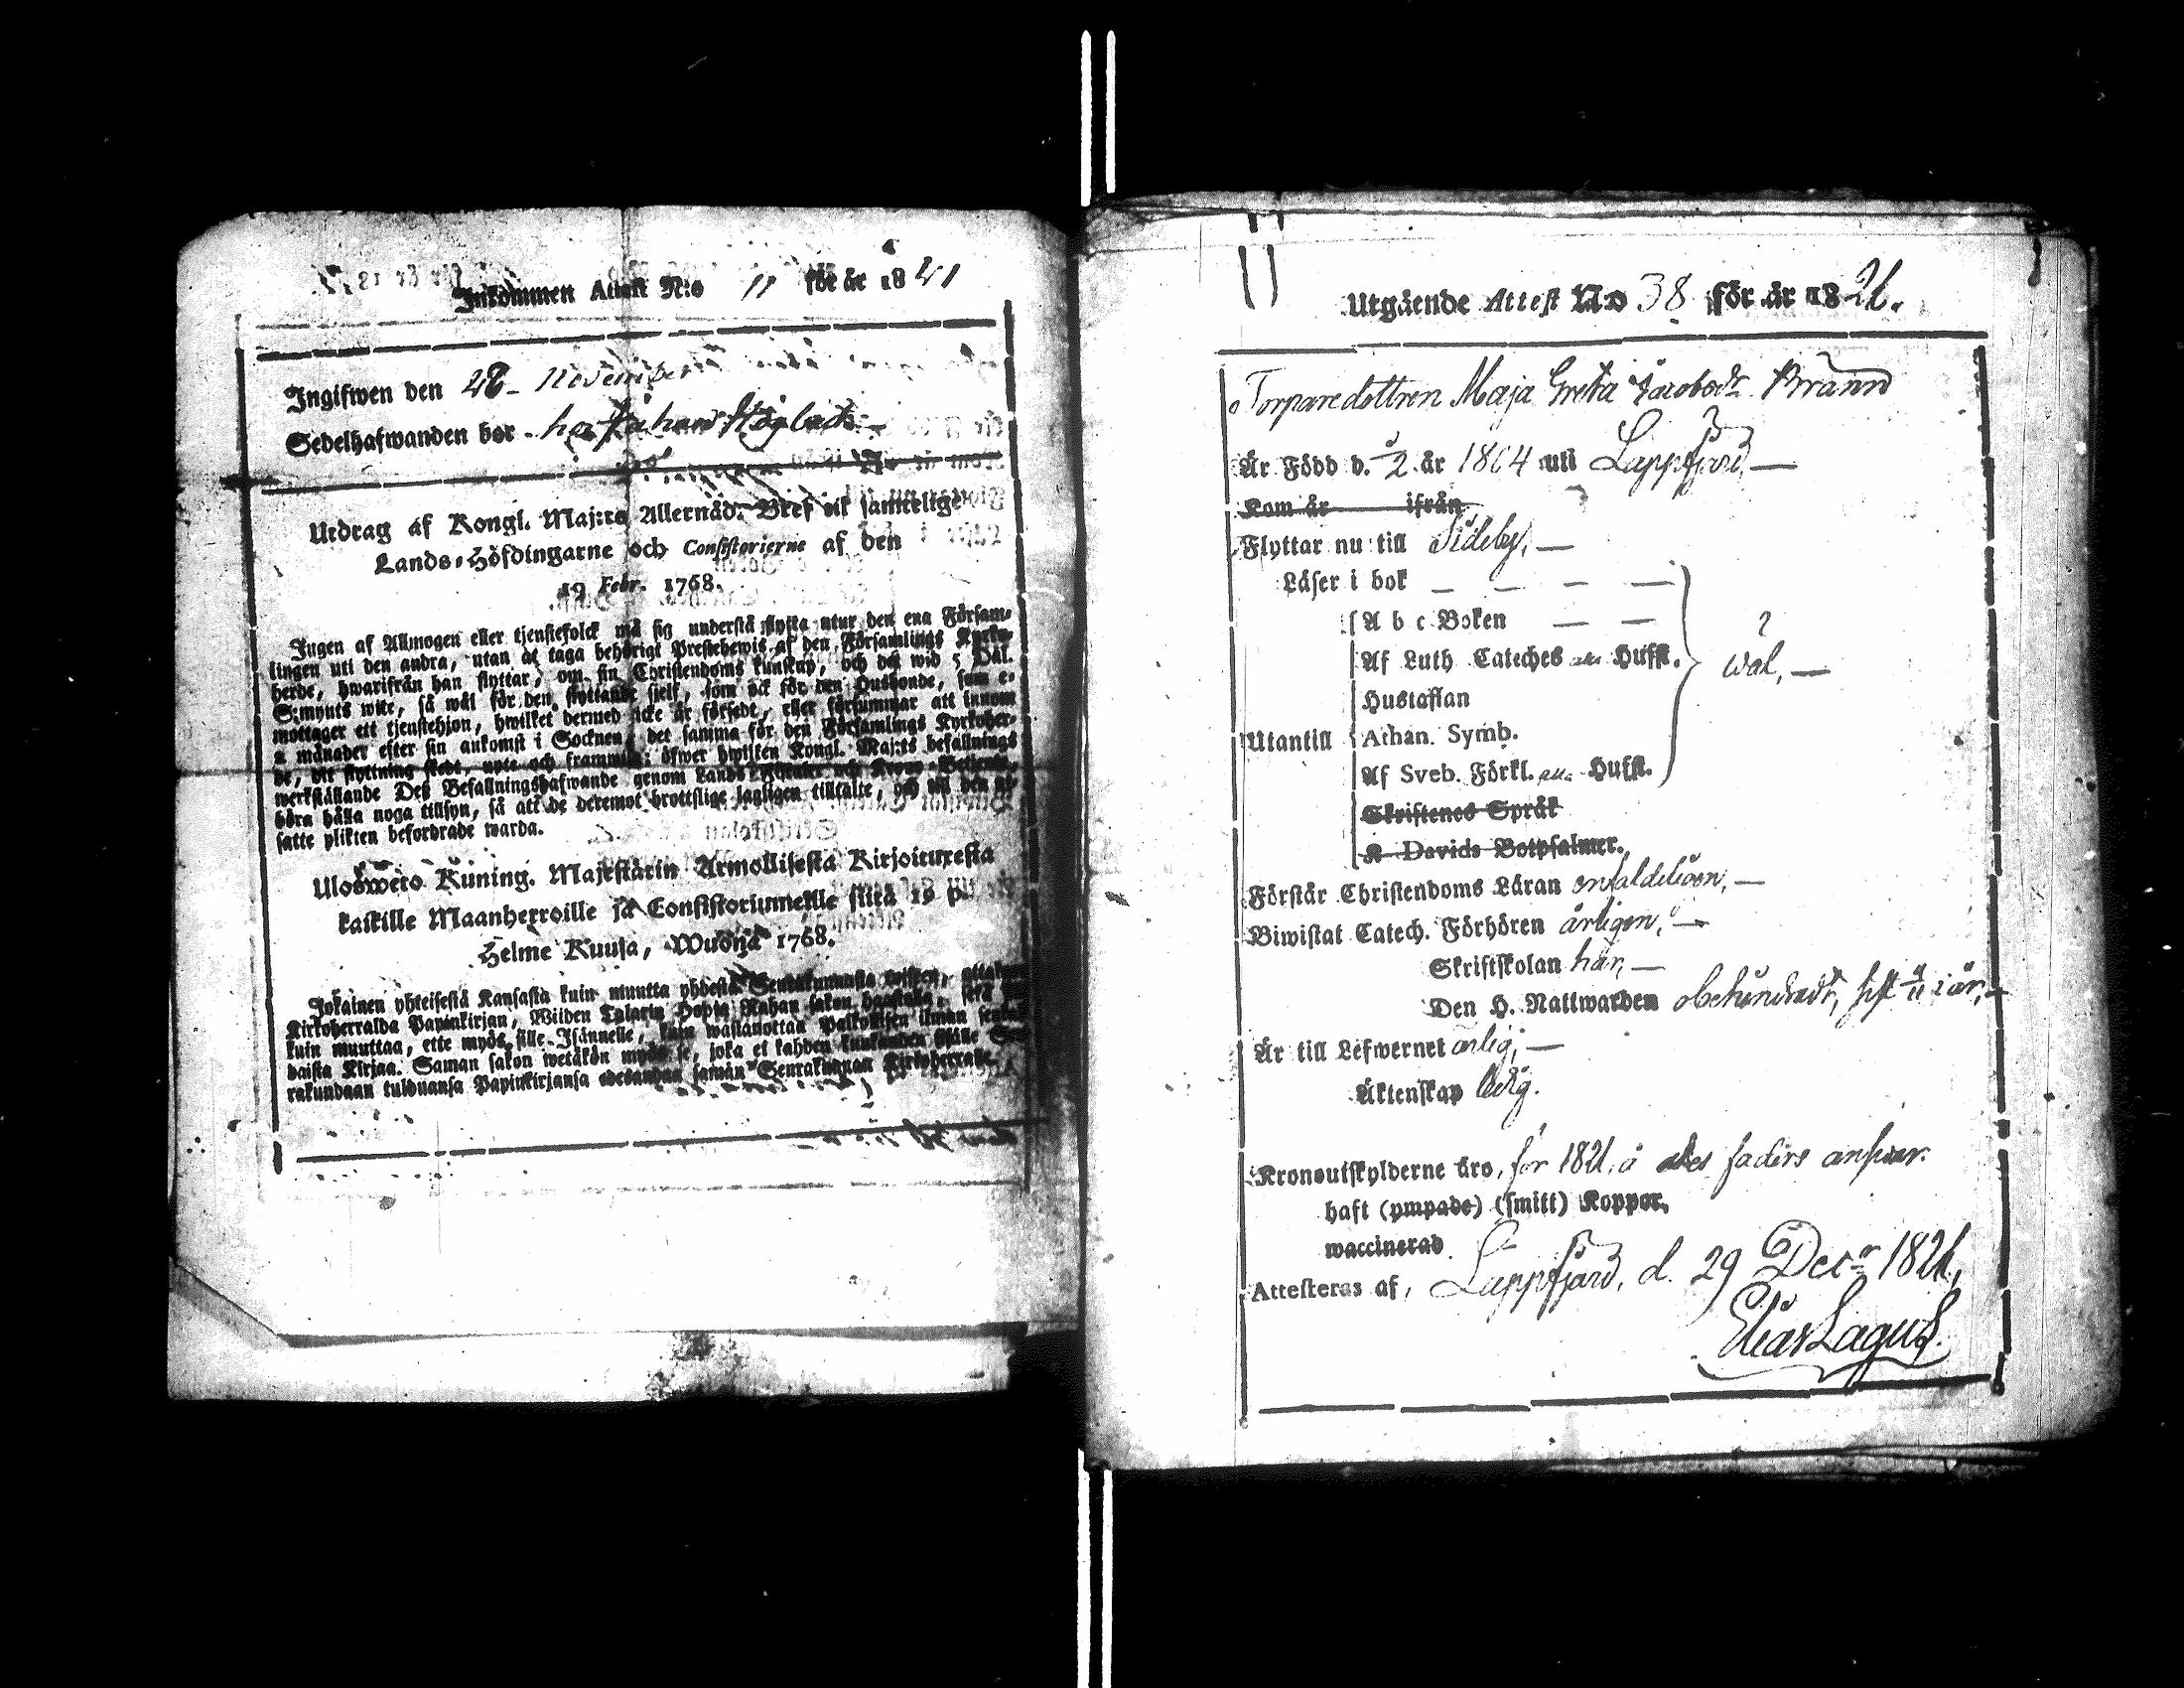 Inkommen Attest N:o 11 för år 1821
Ingifwen den 28 November
Sedelhafwanden bor hos Johan Högback
Utdrag af Kongl. Maj:ts Allernåd. Bref till samtelige
Lands-Höfdingarne och Consistorierne af den
19 Febr. 1768.
Ingen af Allmogen eller tjenstefolck må sig understå flytta utur den ena Försam-
lingen uti den andra, utan at taga behörigt Prestebewis af den Församlings Kyrko-
herde, hwarifrån han flyttar, om sin Christendoms kunskap, och det wid 5 Dal.
S:mynts wite, så wäl för den flyttande sjelf, som ock för den Husbonde, som e-
mottager ett tjenstehjon, hwilket dermed icke är försedt, eller försummar att innom
2 månader efter sin ankomst i Socknen, det samma för den Församlings Kyrkoher-
de, dit flyttning skedt, upte och framwisa: öfwer hwilken Kongl. Maj:ts befallnings
werkställande Deß Befallningshafwande genom Lands Fiscaler och Krono-Betiente,
böra hålla noga tillsyn, så att de deremot brottslige lagligen tilltalte, och till den ut-
satte plikten befordrade warda.
Ulosweto Kuning. Majestätin Armollisesta Kirjoituxesta
kaikille Maanherroille ja Consistoriumeille siitä 19 p.
Helme Kuusa, Wuonna 1768.
Jokainen yhteisestä Kansasta kuin muutta yhdestä Seurakunnasta toiseen, ottakoon
Kirkoherralda Papinkirjan, Wiiden Talarin Hopia Rahan sakon haastolla, sekä se
kuin muuttaa, ette myös sille Isännelle, kuin wastanottaa Palkollisen ilman senkal-
daista Kirjaa. Saman sakon wetäkön myös se, joka ei kahden kuukauden sisälle Seu-
rakundaan tulduansa Papinkirjansa edesanna saman Seurakunnan Kirkoherralle.
Utgående Attest N:o 38 för år 1821.
Torparedottren Maja Greta Jacobsdr Bränn
Är Född d. 2 år 1804 uti Lappfjärd,—
Kom år ifrån
Flyttar nu till Sideby,—
Läser i bok
A b c Boken
Af Luth Cateches Hufst.
wäl,—
Hustaflan
Utantill Athan. Symb.
Af Sveb. Förkl. Hufst.
Skriftenes Språk
K Davids Botpsalmer.
Förstår Christendoms Läran enfaldeligen,—
Biwistat Catech. Förhören årligen,—
Skriftskolan här,—
Den H. Nattwarden obehindradt, i år,—
Är till Lefwernet ärlig,—
Äktenskap ledig.
Kronoutskylderne äro, för 1821, å faders answar.
haft (ympade) (smitt) Koppor,
waccinerad
Attesteras af, Lappfjärd, d. 29 Decr 1821,
Elias Lagus.